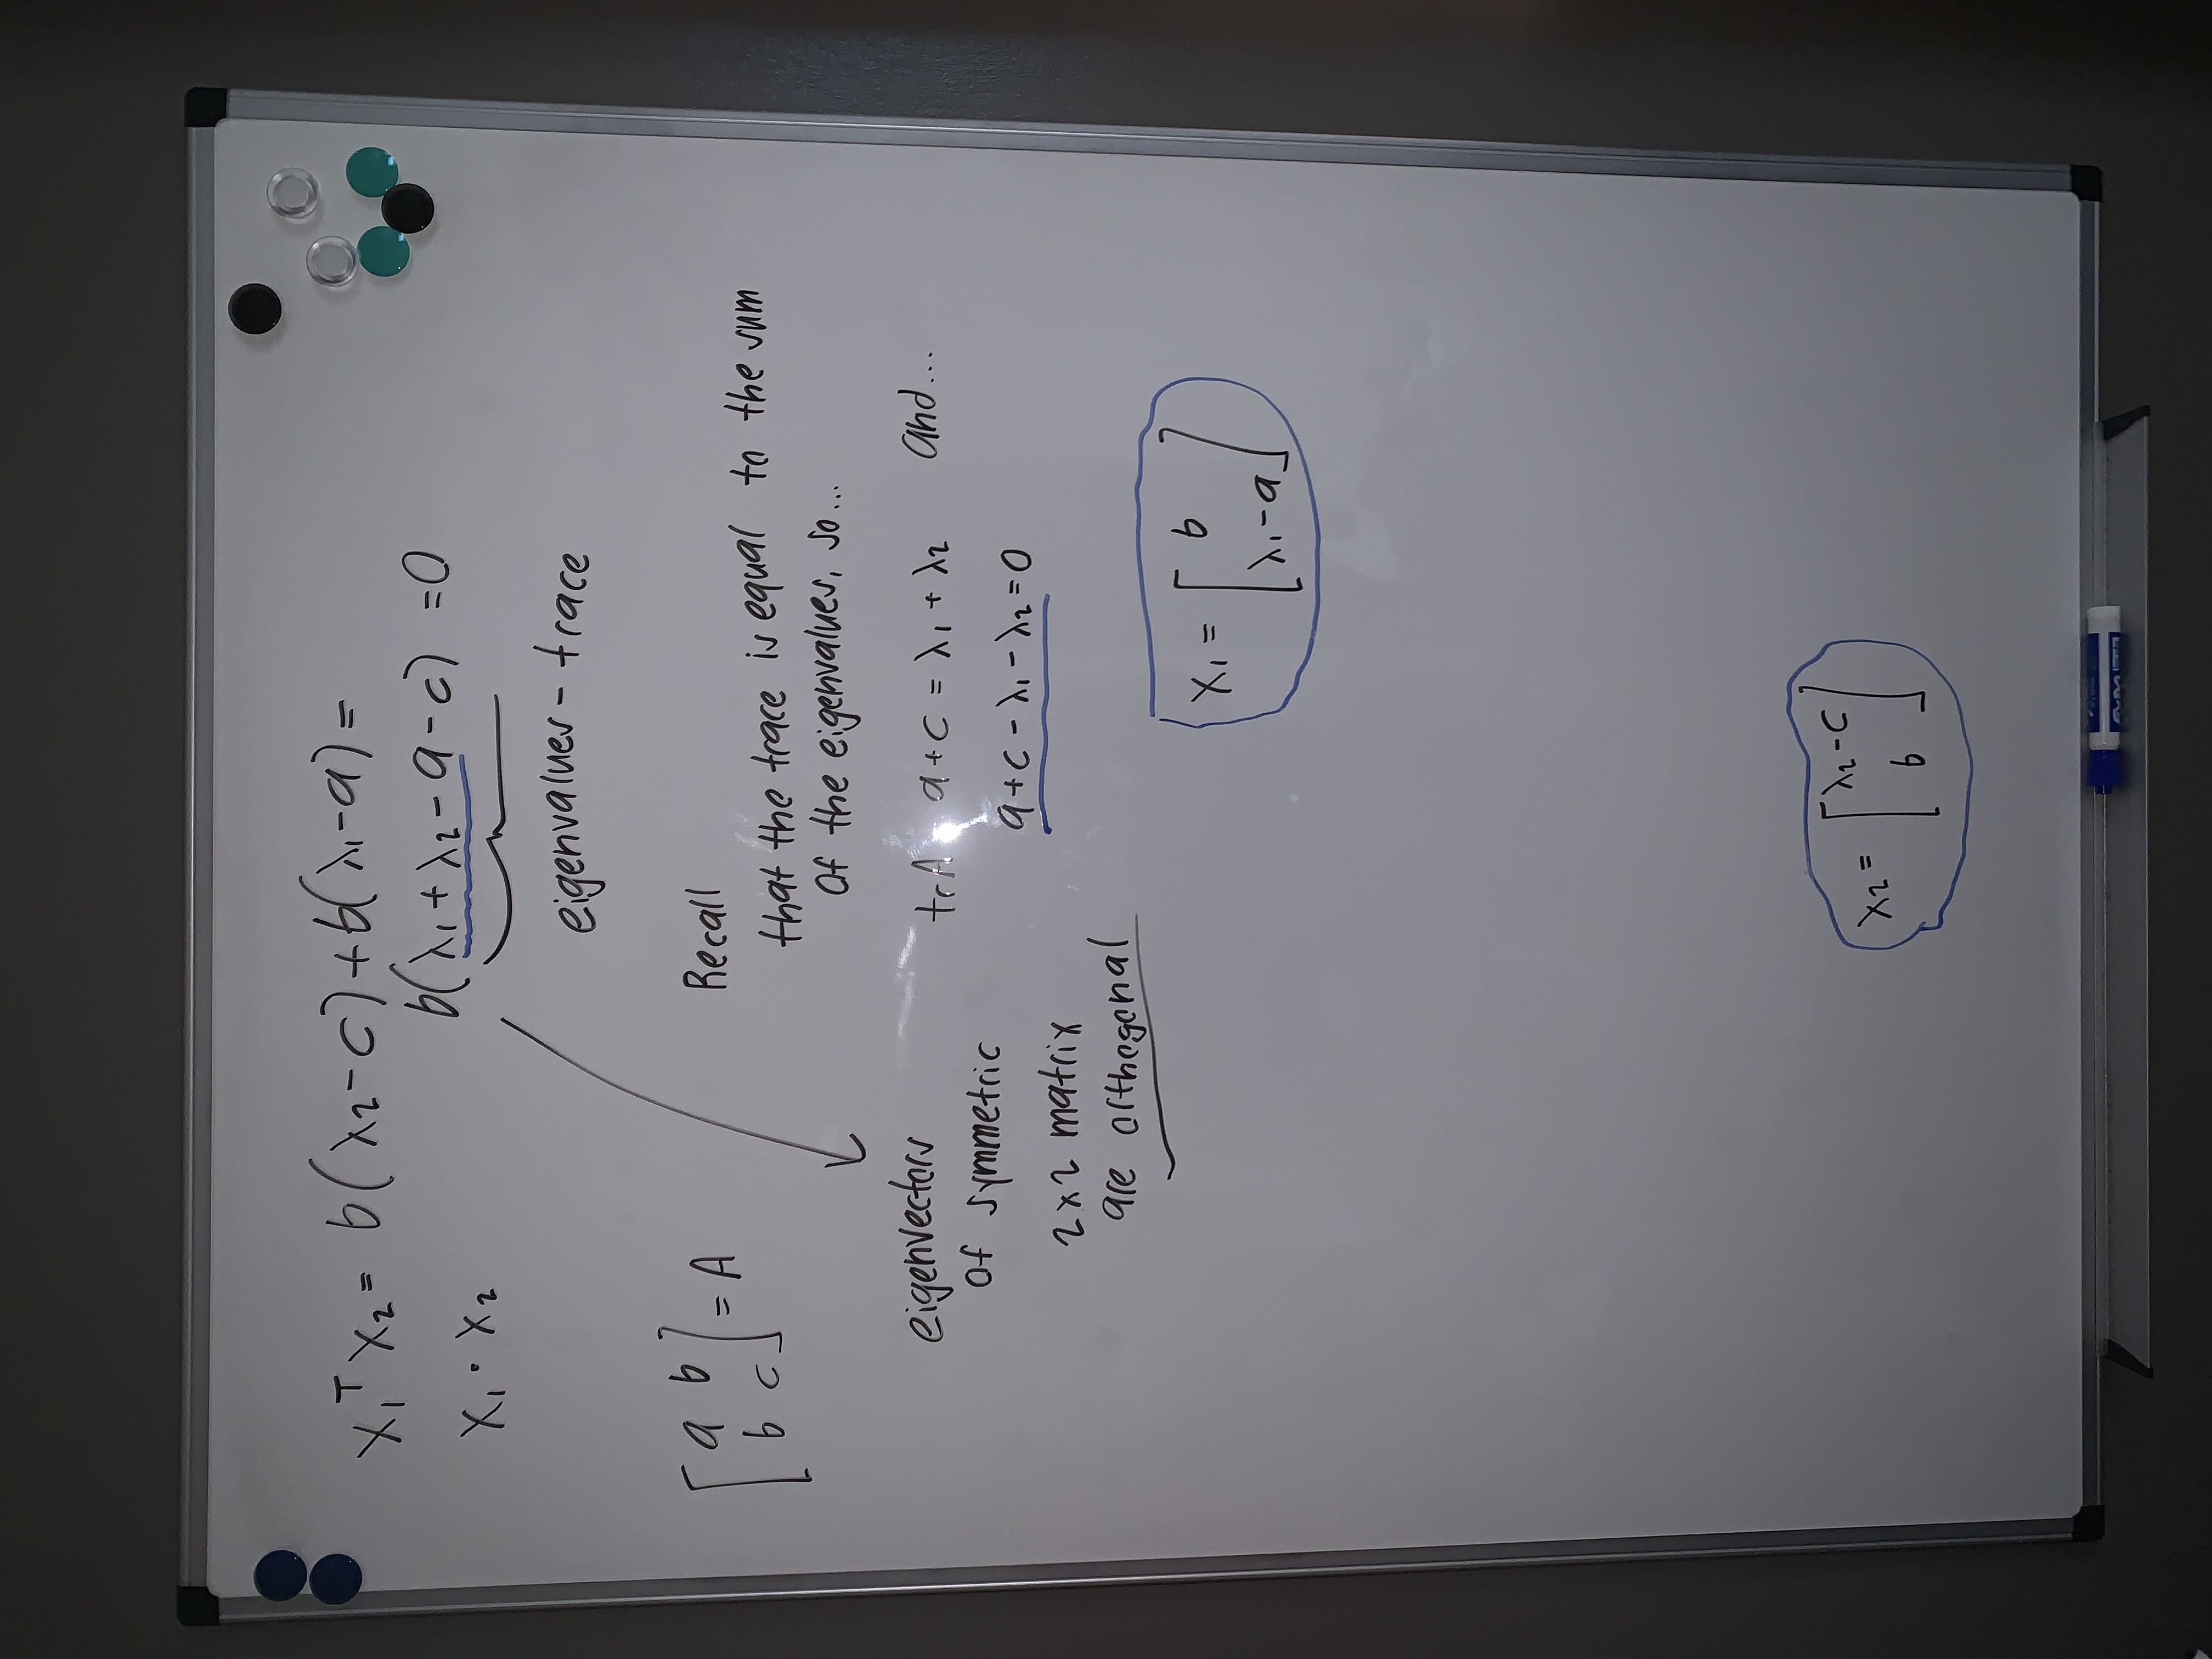 x₁ᵀ x₂ = b(λ₂-c) + b(λ₁-a) =
x₁ · x₂ b(λ₁ + λ₂ - a - c) = 0
eigenvalues - trace
[ a b
b c ] = A
Recall
that the trace is equal to the sum
of the eigenvalues, so...
trA a + c = λ₁ + λ₂ and...
a + c - λ₁ - λ₂ = 0
eigenvectors
of symmetric
2x2 matrix
are orthogonal
x₁ = [ b
λ₁-a ]
x₂ = [ λ₂-c
b ]